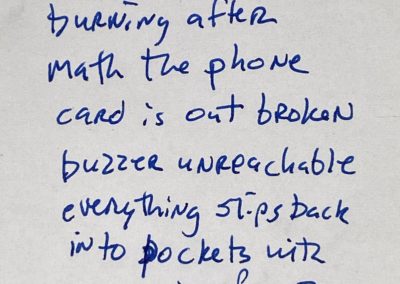 burning after
math the phone
card is out broken
buzzer unreachable
everything slips back
into pockets with